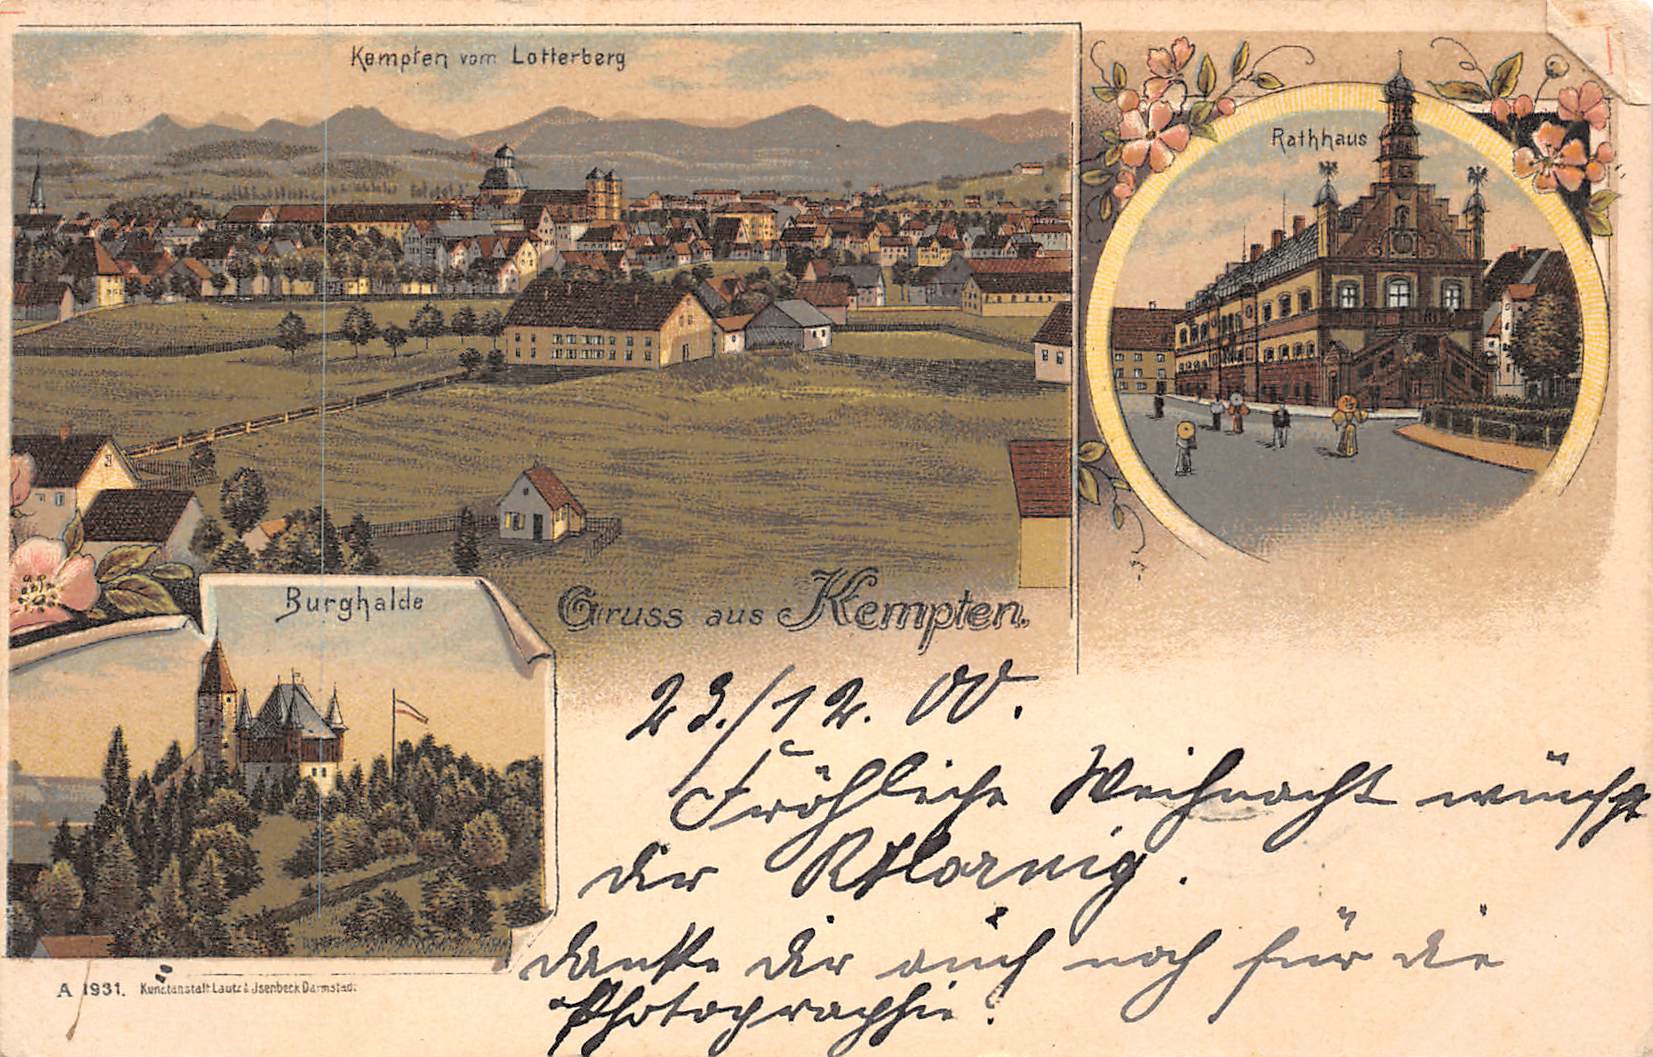 Kempten vom Lotterberg
Rathhaus
Burghalde
Gruss aus Kempten.
23./12. 00.
Fröhliche Weihnacht wünscht
dir
danke dir auch noch für die
Photographie!
A 1931. Kunstanstalt Lautz & Jsenbeck Darmstadt.